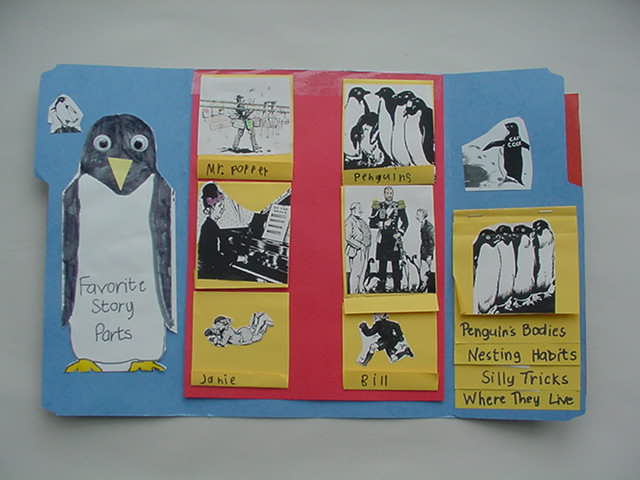 Favorite
Story
Parts
Mr. Popper
Penguins
Janie
Bill
Penguin's Bodies
Nesting Habits
Silly Tricks
Where They Live